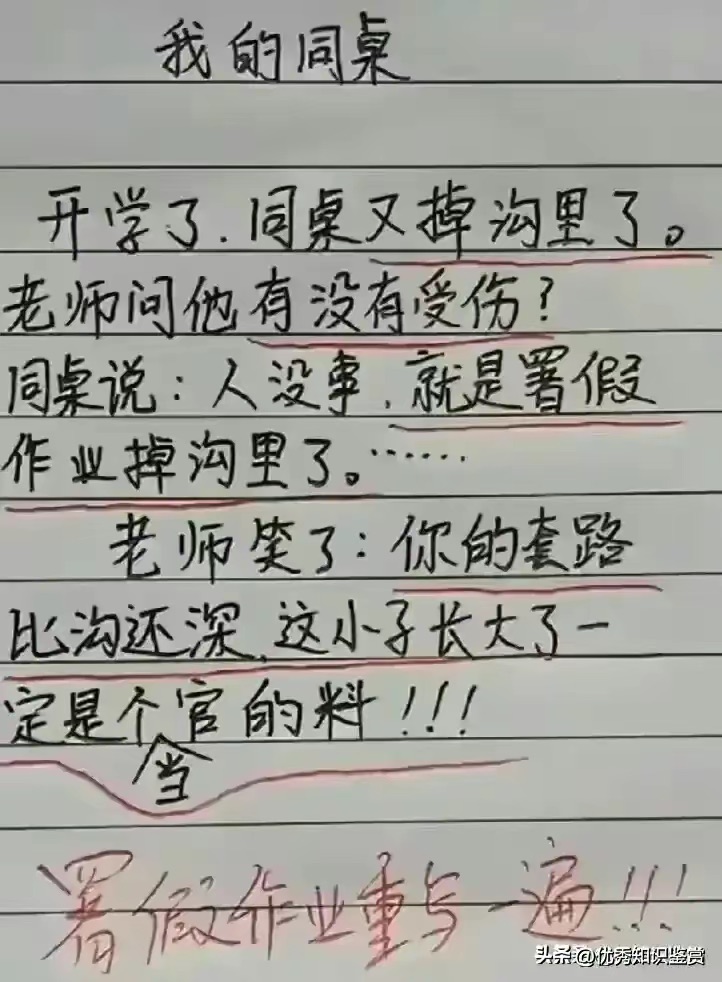 我的同桌
开学了,同桌又掉沟里了。
老师问他有没有受伤?
同桌说:人没事,就是署假
作业掉沟里了。……
老师笑了:你的套路
比沟还深,这小子长大了一
定是个官的料!!!
当
署假作业重写一遍!!!
头条@优秀知识鉴赏